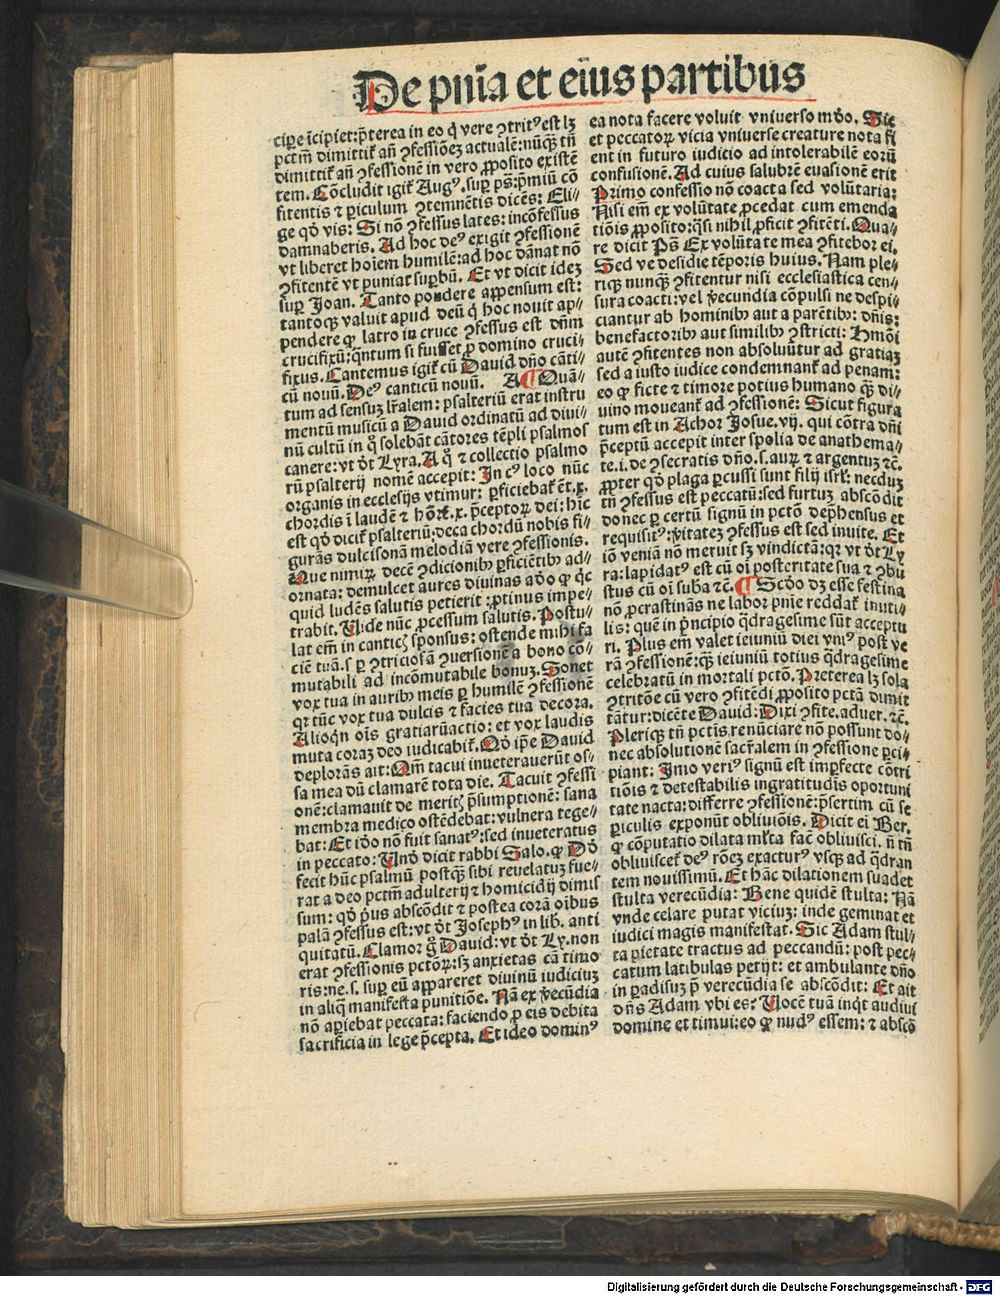 De pnīa et eīus partibus
cipe īcipiet: p̄terea in eo q̇ vere ꝯtritꝰ est lꝫ
pctm̄ dimittit᷑ añ ꝯfessiōeꝫ actualē: nūqꝫ tñ
dimittit᷑ añ ꝯfessionē in vero ꝓposito existē
tem. Cōcludit igit᷑ Augꝰ. suꝑ ps̄: p̄miū cō
fitentis ⁊ ꝑiculum ꝯtemnētis dicēs: Eli⸗
ge qḋ vis: Si nō ꝯfessus lates: incōfessus
damnaberis. Ad hoc deꝰ exigit ꝯfessionē
vt liberet hoīem humilē: ad hoc dānat nō
ꝯfitentē vt puniat suꝑbū. Et vt dicit ideꝫ
suꝑ Joan. Tanto pondere appensum est:
tantoqꝫ valuit apud deū q̇ hoc nouit ap⸗
pendere ꝙ latro in cruce ꝯfessus est dñm
crucifixū: q̄ntum si fuisset ꝓ domino cruci⸗
fixus. Cantemus igit᷑ cū Dauid dño cāti⸗
cū nouū. Deꝰ canticū nouū. A ¶ Quā⸗
tum ad sensuꝫ lr̄alem: psalteriū erat instru
mentū musicū a Dauid ordinatū ad diui⸗
nū cultū in q̊ solebāt cātores tēpli psalmos
canere: vt ḋt Lyra. A q̊ ⁊ collectio psalmo
rū psalterij nomē accepit: In cꝰ loco nūc
organis in ecclesijs vtimur: ꝑficiebat᷑ ēt .x.
chordis ī laudē ⁊ .x. p̄ceptoꝝ dei: hīc
est qḋ dicit᷑ psalteriū: deca chordū nobis fi⸗
gurās dulcisonā melodiā vere ꝯfessionis.
Que nimiꝝ decē ꝯdicionibꝫ ꝑficiētibꝫ ad⸗
ornata: demulcet aures diuinas adō ꝙ q̇c
quid ludēs salutis petierit: ꝓtinus impe⸗
trabit. Unde nūc ꝓcessum salutis. Postu⸗
lat em̄ in canticꝭ sponsus: ostende mihi fa
ciē tuā. s ꝑ ꝯtriciosā ꝯuersionē a bono cō⸗
mutabili ad incōmutabile bonuꝫ. Sonet
vox tua in auribꝫ meis ꝑ humilē ꝯfessionē
qꝛ tūc vox tua dulcis ⁊ facies tua decora.
Alioqn̄ oīs gratiarūactio: et vox laudis
muta coraꝫ deo iudicabit᷑. Qḋ ip̄e Dauid
deplorās ait: Qm̄ tacui inueterauerūt os⸗
sa mea dū clamarē tota die. Tacuit ꝯfessi
onē: clamauit de meritꝭ p̄sumptionē: sana
membra medico ostēdebat: vulnera tege⸗
bat: Et iḋo nō fuit sanatꝰ: sed inueteratus
in peccato: Unḋ dicit rabbi Salo. ꝙ Dḋ
fecit hūc psalmū postqꝫ sibi reuelatuꝫ fue⸗
rat a deo pctm̄ adulterij ⁊ homicidij dimis
sum: qḋ p̄us abscōdit ⁊ postea corā oībus
palā ꝯfessus est: vt ḋt Josephꝰ in lib. anti
quitatū. Clamor g̊ Dauid: vt ḋt Ly. non
erat ꝯfessionis pctōꝝ: sꝫ anxietas cā timo
ris: ne .s. suꝑ eū appareret diuinū iudiciuꝫ
in aliq̄ manifesta punitiōe. Nā ex v̄ecūdia
nō aꝑiebat peccata: faciendo ꝓ eis debita
sacrificia in lege p̄cepta. Et ideo dominꝰ
ea nota facere voluit vniuerso mḋo. Sic
et peccatoꝝ vicia vniuerse creature nota fi
ent in futuro iudicio ad intolerabilē eorū
confusionē. Ad cuius salubrē euasionē erit
Primo confessio nō coacta sed volūtaria:
Nisi em̄ ex volūtate ꝓcedat cum emenda
tiōis ꝓposito: q̄si nihil ꝓficit ꝯfitēti. Qua⸗
re dicit Ps̄ Ex volūtate mea ꝯfitebor ei.
Sed ve desidie tēporis huius. Nam ple⸗
riqꝫ nunqꝫ ꝯfitentur nisi ecclesiastica cen⸗
sura coacti: vel v̄ecundia cōpulsi ne despi⸗
ciantur ab hominibꝫ aut a parētibꝫ: dñis:
benefactoribꝫ aut similibꝫ ꝯstricti: Hmōi
autē ꝯfitentes non absoluūtur ad gratiaꝫ
sed a iusto iudice condemnant᷑ ad penam:
eo ꝙ ficte ⁊ timore potius humano qꝫ di⸗
uino moueant᷑ ad ꝯfessionē: Sicut figura
tum est in Achor Josue .vij. qui cōtra dñi
p̄ceptū accepit inter spolia de anathema⸗
te .i. de ꝯsecratis dño .s. auꝝ ⁊ argentuꝫ ⁊c̄.
ꝓpter qḋ plaga ꝑcussi sunt filij isrl̄: necduꝫ
tñ ꝯfessus est peccatū: sed furtuꝫ abscōdit
donec ꝑ certū signū in pctō dep̄hensus et
requisitꝰ: v̄itateꝫ ꝯfessus est sed inuite. Et
iō veniā nō meruit sꝫ vindictā: qꝛ vt ḋt Ly
ra: lapidatꝰ est cū oī posteritate sua ⁊ ꝯbu
stus cū oī suba ⁊c̄. ¶ Scḋo dꝫ esse festina
nō ꝓcrastinās ne labor pn̄ie reddat᷑ inuti⸗
lis: quē in p̄ncipio q̄dragesime sūt acceptu
ri. Plus em̄ valet ieiuniū diei vniꝰ post ve
rā ꝯfessionē: qꝫ ieiuniū totius q̄dragesime
celebratū in mortali pctō. Preterea lꝫ sola
ꝯtritōe cū vero ꝯfitēdi ꝓposito pctā dimit
tātur: dicēte Dauid: Dixi ꝯfite. aduer. ⁊c̄.
Pleriqꝫ tñ pctis renūciare nō possunt dō⸗
nec absolutionē sacr̄alem in ꝯfessione ꝑci⸗
piant: Imo veriꝰ signū est imꝑfecte cōtri
tiōis ⁊ detestabilis ingratitudīs oportuni
tate nacta: differre ꝯfessionē: p̄sertim cū se
ꝑiculis exponūt obliuiōis. Dicit ei Ber.
ꝙ cōputatio dilata ml̄ta fac̄ obliuisci. ñ tñ
obliuiscet᷑ deꝰ rōeꝫ exacturꝰ vsqꝫ ad q̄dran
tem nouissimū. Et hāc dilationem suadet
stulta verecūdia: Bene quidē stulta: Nā
vnde celare putat viciuꝫ: inde geminat et
iudici magis manifestat. Sic Adam stul⸗
ta pietate tractus ad peccandū: post pec⸗
catum latibulas petijt: et ambulante dño
in paradisuꝫ p̄ verecūdia se abscōdit: Et ait
dñs Adam vbi es? Uocē tuā inq̇t audiui
domine et timui: eo ꝙ nudꝰ essem: ⁊ abscō
Digitalisierung gefördert durch die Deutsche Forschungsgemeinschaft - DFG